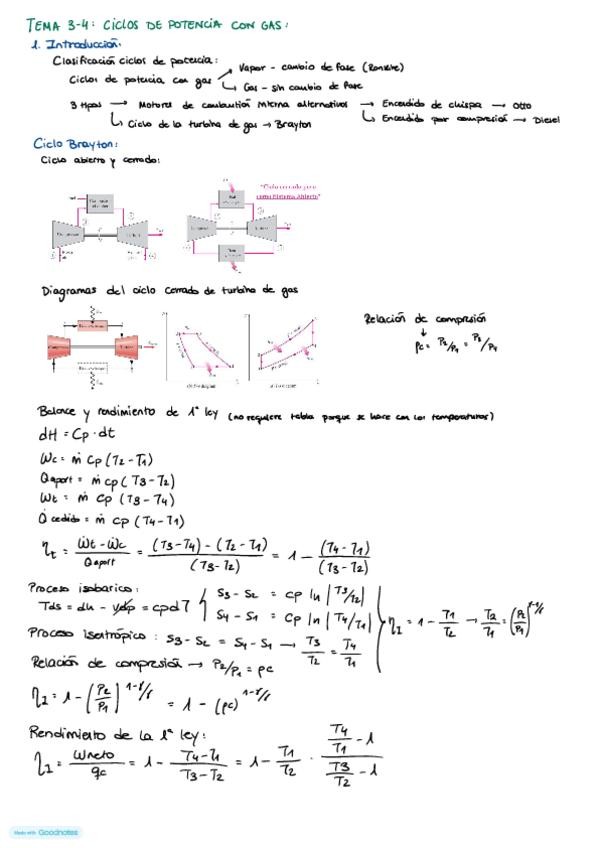 TEMA 3-4: CICLOS DE POTENCIA CON GAS:
1. Introducción.
Clasificación ciclos de potencia:
Ciclos de potencia con gas → Vapor - cambio de fase (Rankine)
↳ Gas - sin cambio de fase
3 tipos → Motores de combustión interna alternativos → Encendido de chispa → Otto
↳ Encendido por compresión → Diesel
↳ Ciclo de la turbina de gas → Brayton
Ciclo Brayton:
Ciclo abierto y cerrado:
Diagramas del ciclo cerrado de turbina de gas
Relación de compresión
↓
pc = P2/P1 = P3/P4
Balance y rendimiento de 1ª ley (no requiere tabla porque se hace con las temperaturas)
dH = Cp · dt
Ẇc = ṁ Cp (T2 - T1)
Q aport = ṁ cp ( T3 - T2)
Ẇt = ṁ cp (T3 - T4)
Q̇ cedido = ṁ cp (T4 - T1)
ηt = (Ẇt - Ẇc) / Q aport = ((T3 - T4) - (T2 - T1)) / (T3 - T2) = 1 - (T4 - T1) / (T3 - T2)
Proceso isobarico:
Tds = dh - vdp = cpdT
S3 - S2 = cp ln |T3/T2|
S4 - S1 = cp ln |T4/T1|
Proceso isentrópico: S3 - S2 = S4 - S1 → T3/T2 = T4/T1
ηI = 1 - T1/T2 → T2/T1 = (P2/P1)^1-γ/γ
Relación de compresión → P2/P1 = pc
ηI = 1 - (P2/P1)^1-γ/γ = 1 - (pc)^1-γ/γ
Rendimiento de la 1ª ley:
ηI = Wneto/qc = 1 - (T4 - T1)/(T3 - T2) = 1 - T1/T2 · (T4/T1 - 1)/(T3/T2 - 1)
Made with Goodnotes